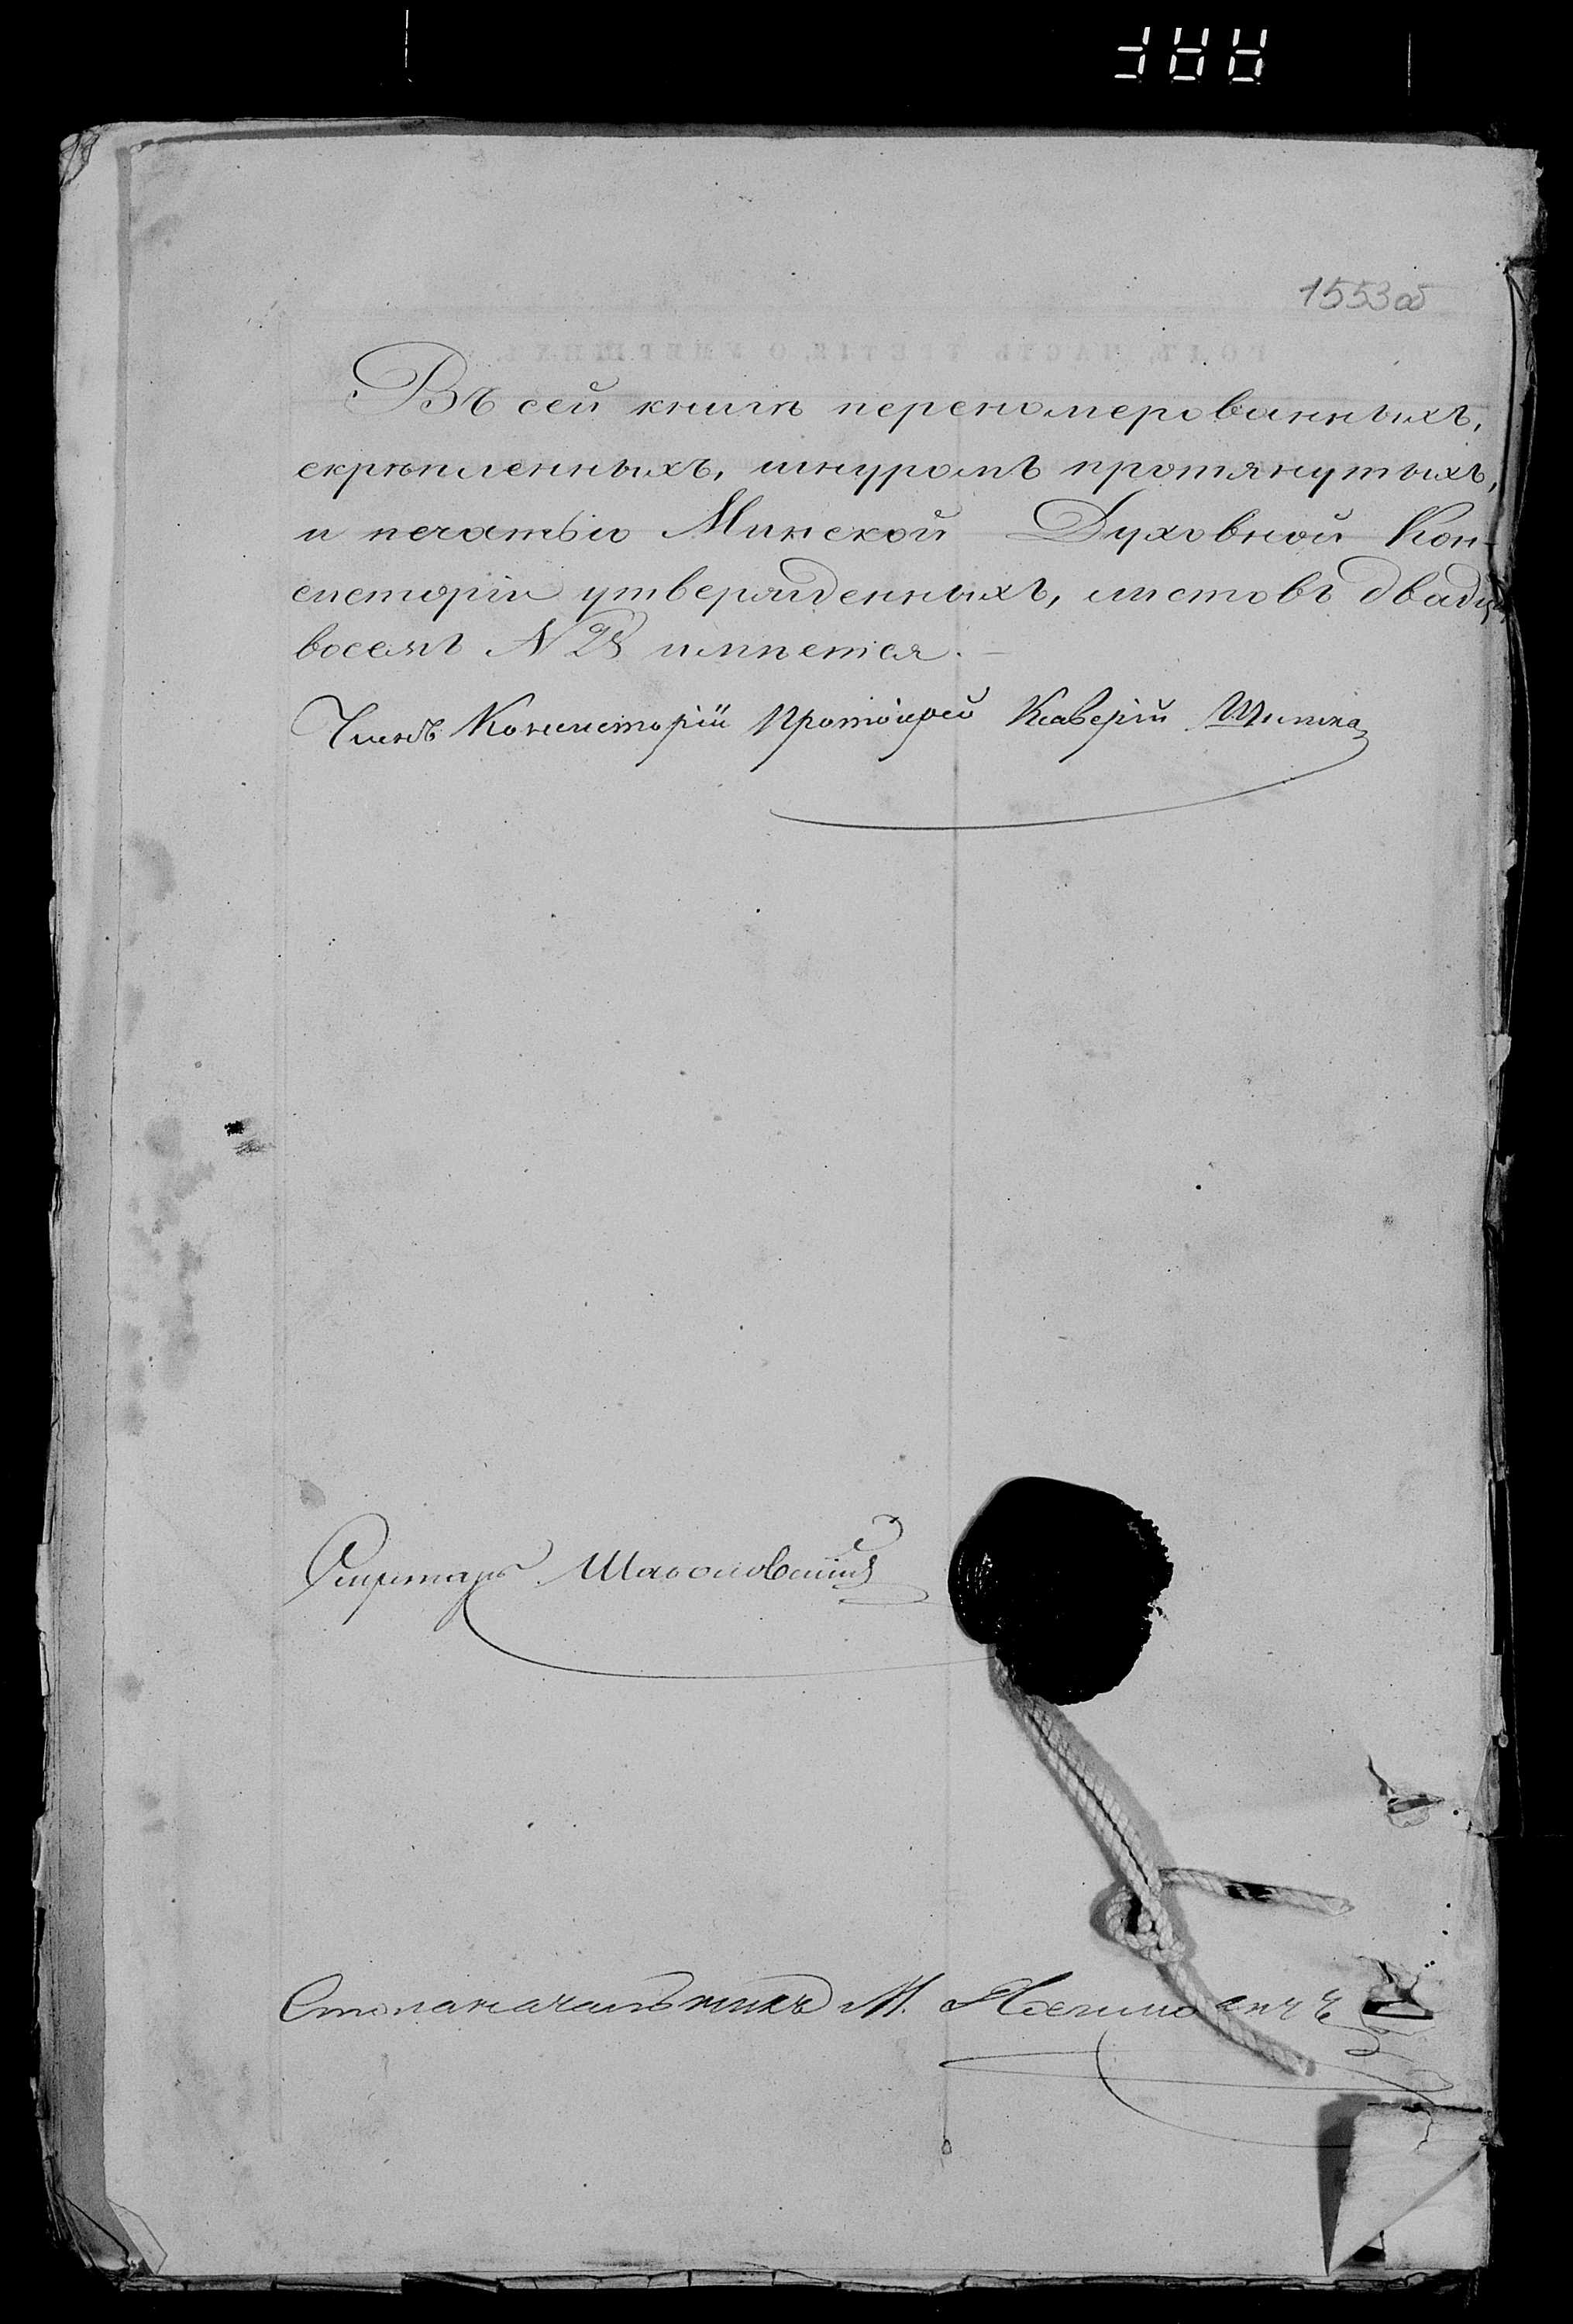 1553об
Въ сей книгѣ переномерованныхъ,
скрѣпленныхъ, шнуромъ протянутыхъ,
и печатью Минской Духовной Кон-
систоріи утвержденныхъ, листовъ двадц
восемъ N 28 имѣется.
Членъ Консисторіи Протоіерей Ксаверій
Секретарь
Столоначальникъ М.